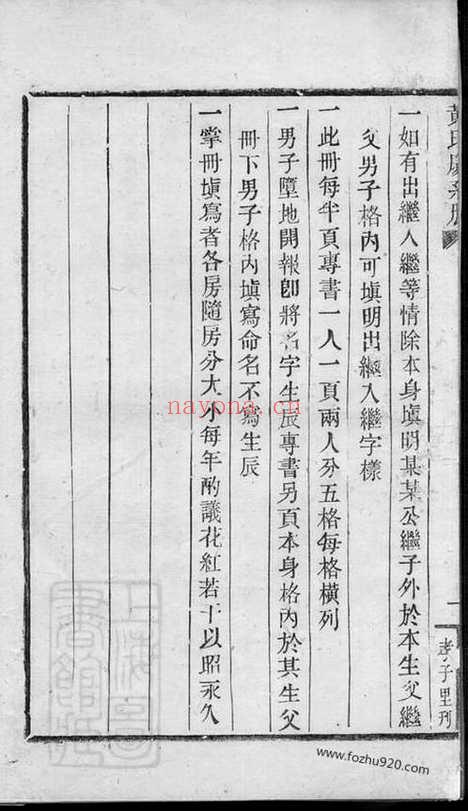 黃氏慶系册
一
孝子里刊
一如有出繼入繼等情除本身塡明某某公繼子外於本生父繼
父男子格內可塡明出繼入繼字樣
一此冊每半頁專書一人一頁兩人分五格每格橫列
一男子墮地開報卽將名字生辰專書另頁本身格內於其生父
冊下男子格內塡寫命名不寫生辰
一掌冊塡寫者各房隨房分大小每年酌議花紅若干以昭永久
上海圖
書館藏
nayona.cn
www.fozhu920.com